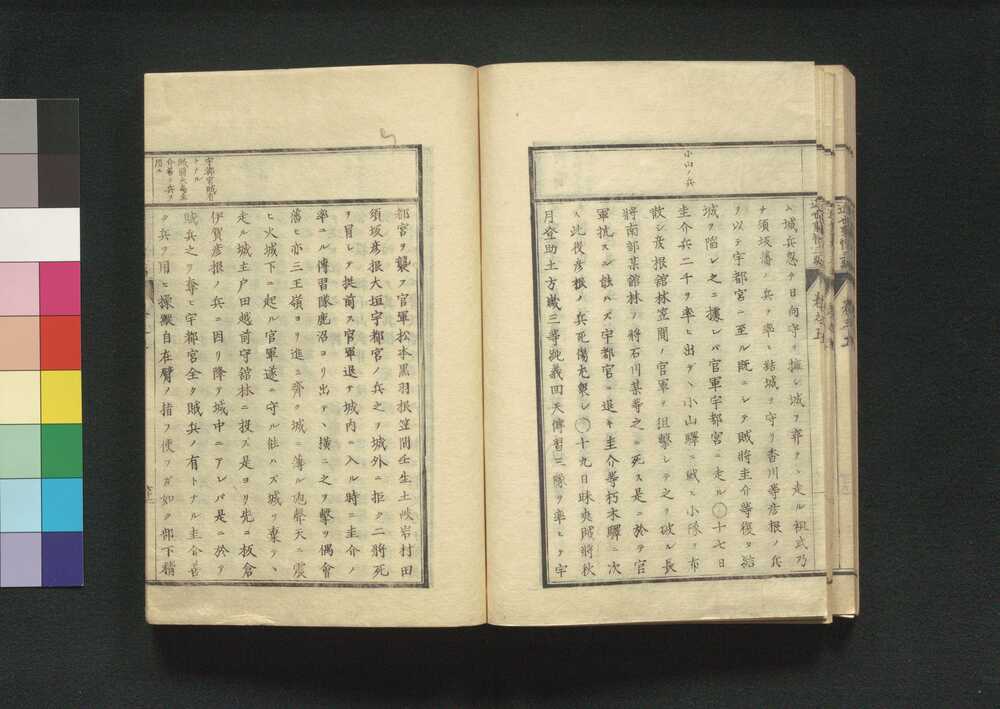 小山ノ兵
ヽ城兵懸チ日向守ヲ擁シ城ヲ棄テヽ走ル祖式乃
チ須坂藩ノ兵ヲ率ヒ結城ヲ守リ香川等彦根ノ兵
ヲ以テ宇都宮ニ至ル既ニシテ賊將圭介等復タ結
城ヲ陷レ之ニ據レバ官軍宇都宮ニ走ル〇十七日
圭介兵二千ヲ率ヒ出デヽ小山驛ニ戰ヒ小隊ヲ布
散シ彦根舘林笠間ノ官軍ヲ狙擊シテ之ヲ破ル長
將南部某舘林ノ將石川某等之ニ死ス是ニ於テ官
軍抗スル能ハズ宇都宮ニ退キ圭介等朽木驛ニ次
ス此役彦根ノ兵死傷尤衆シ〇十九日昧爽賊將秋
月登助土方歲三等純義回天傳習三隊ヲ率ヒテ宇
宇都宮賊有
トナル
賊將大鳥圭
介善ク兵ヲ
用ユ
都宮ヲ襲フ官軍松本黒羽根笠間壬生土岐岩村田
須坂彦根大垣宇都宮ノ兵之ヲ城外ニ拒ク二將死
ヲ冒シテ挺前ス官軍退テ城内ニ入ル時ニ圭介ノ
率ユル傳習隊鹿沼ヨリ出テヽ横ニ之ヲ擊ツ偶會
藩ヒ亦三王嶺ヨリ進ミ齊ク城ニ薄ル砲聲天ニ震
ヒ火城下ニ起ル官軍遂ニ守ル能ハズ城ヲ棄テヽ
走ル城主戸田越前守舘林ニ投ス是ヨリ先コ板倉
伊賀彦根ノ兵ニ因リ降テ城中ニアレバ是ニ於テ
賊兵之ヲ奪ヒ宇都宮全タ賊兵ノ有トナル圭介善
ク兵ヲ用ヒ操縱自在臂ノ指ヲ使フガ如ク部下精